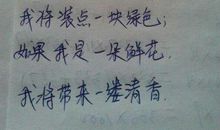 我将装点一块绿色；
如果我是一朵鲜花，
我将带来一缕清香．